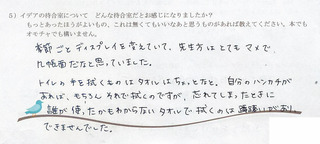 5）イデアの待合室について　どんな待合室だとお感じになりましたか？
もっとあったほうがよいもの、これは無くてもいいなあと思うものがあれば教えてください。本でも
オモチャでも構いません。
季節ごとディスプレイを変えていて、先生方はとてもマメで、
几帳面だなと思っていました。
トイレの手を拭くものはタオルはちょっとなと。自分のハンカチが
あれば、もちろんそれで拭くのですが、忘れてしまったときに
誰が使ったかもわからないタオルで拭くのは
できませんでした。